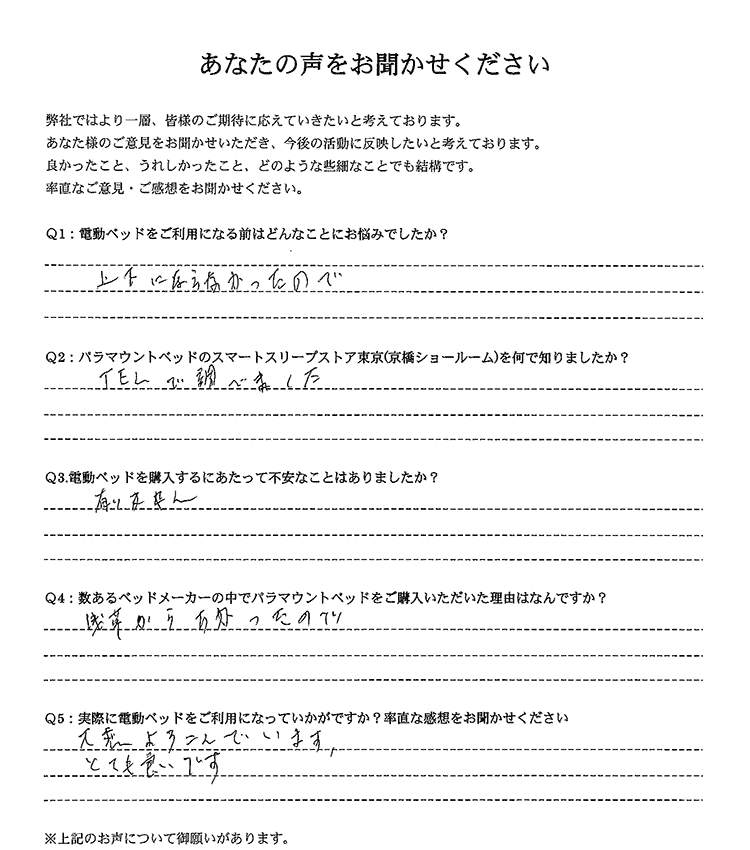 あなたの声をお聞かせください
弊社ではより一層、皆様のご期待に応えていきたいと考えております。
あなた様のご意見をお聞かせいただき、今後の活動に反映したいと考えております。
良かったこと、うれしかったこと、どのような些細なことでも結構です。
率直なご意見・ご感想をお聞かせください。
Q1：電動ベッドをご利用になる前はどんなことにお悩みでしたか？
上下にならなかったので
Q2：パラマウントベッドのスマートスリープストア東京(京橋ショールーム)を何で知りましたか？
TELで調べました
Q3.電動ベッドを購入するにあたって不安なことはありましたか？
有りません
Q4：数あるベッドメーカーの中でパラマウントベッドをご購入いただいた理由はなんですか？
浅草から ったので
Q5：実際に電動ベッドをご利用になっていかがですか？率直な感想をお聞かせください
大変よろこんでいます,
とても良いです
※上記のお声について御願いがあります。